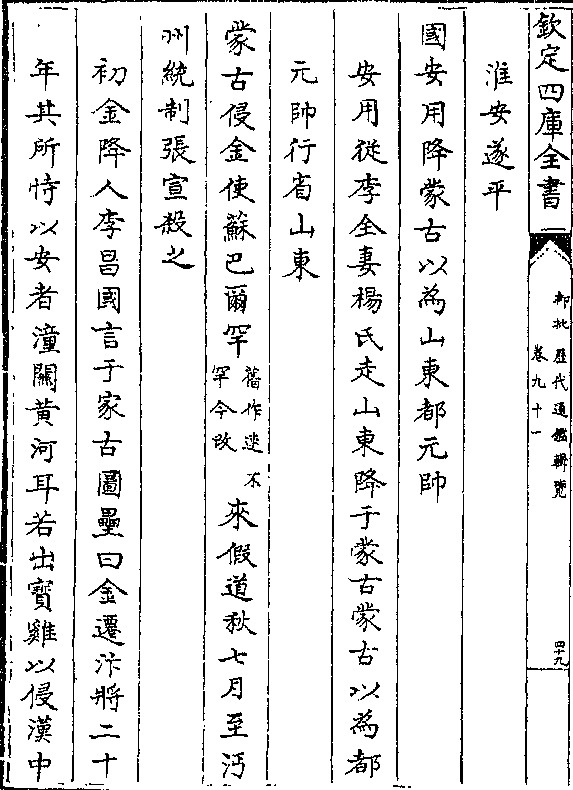 欽定四庫全書
御批歷代通鑑輯覽
卷九十一
四十九
淮安遂平
國安用降蒙古以為山東都元帥
安用從李全妻楊氏走山東降于蒙古蒙古以為都
元帥行省山東
蒙古侵金使蘇巴爾罕舊作速不罕今改來假道秋七月至沔
州統制張宣殺之
初金降人李昌國言于家古圖壘曰金遷汴將二十
年其所恃以安者潼關黃河耳若出寶雞以侵漢中